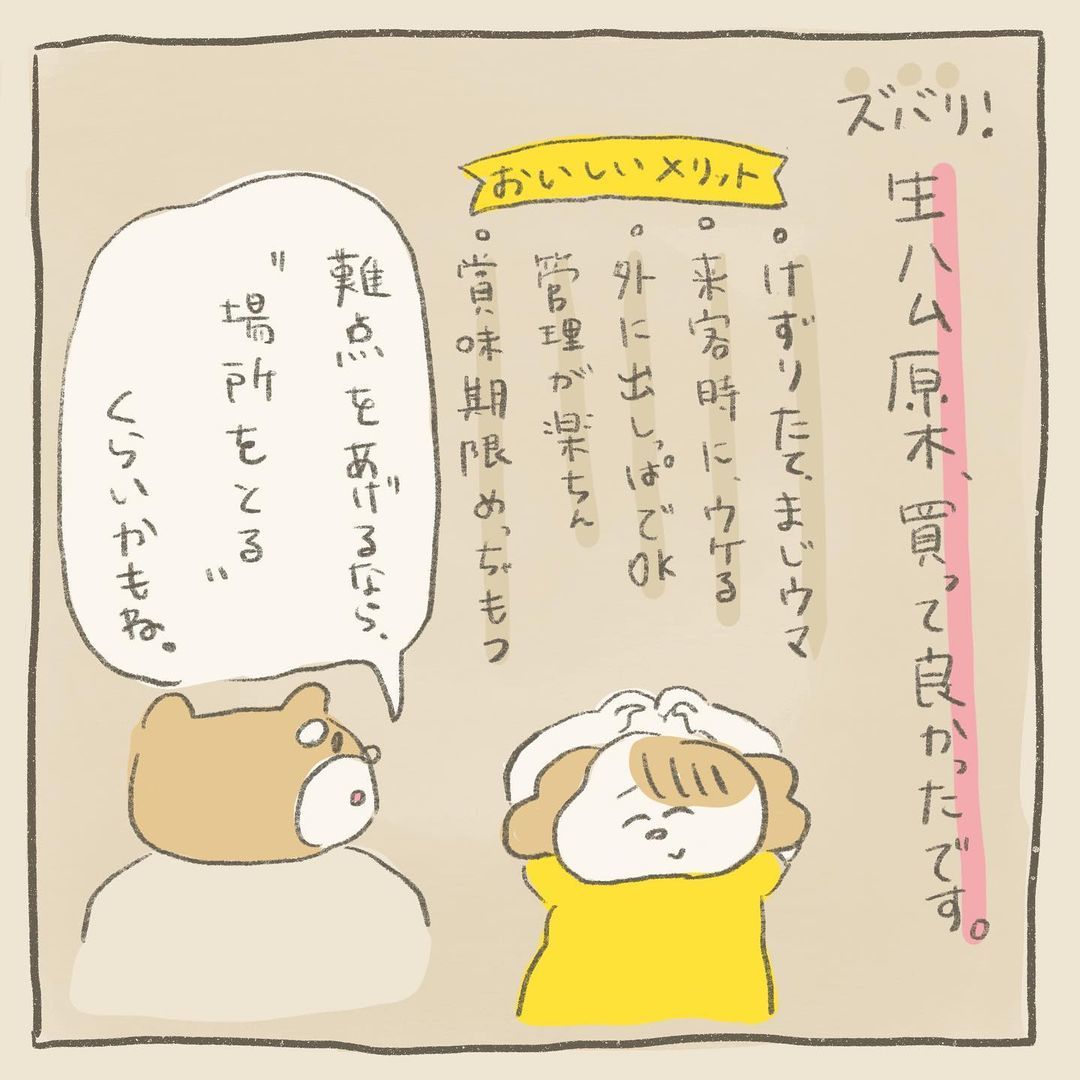 ズバリ!
生ハム原木、買って良かったです。
おいしいメリット
。けずりたて、まじウマ
。来客時に、ウケる
。外に出しっぱでOK
管理が楽ちん
。賞味期限めっちゃもつ
難点をあげるなら、
"場所をとる"
くらいかもね。